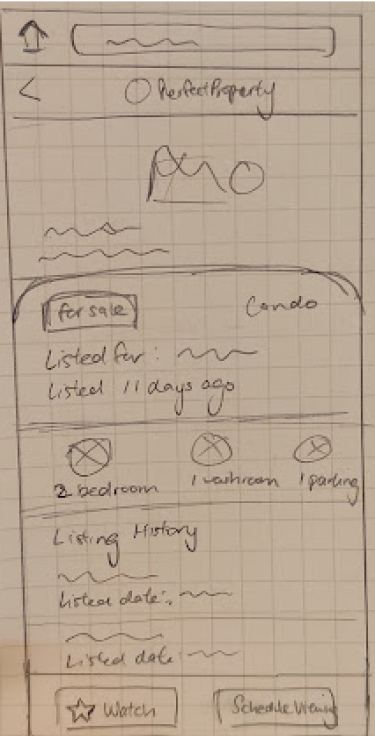 PerfectProperty
for sale
Condo
Listed for:
Listed 11 days ago
2 bedroom
1 washroom
1 parking
Listing History
Listed date:
Listed date:
Watch
Schedule Viewing